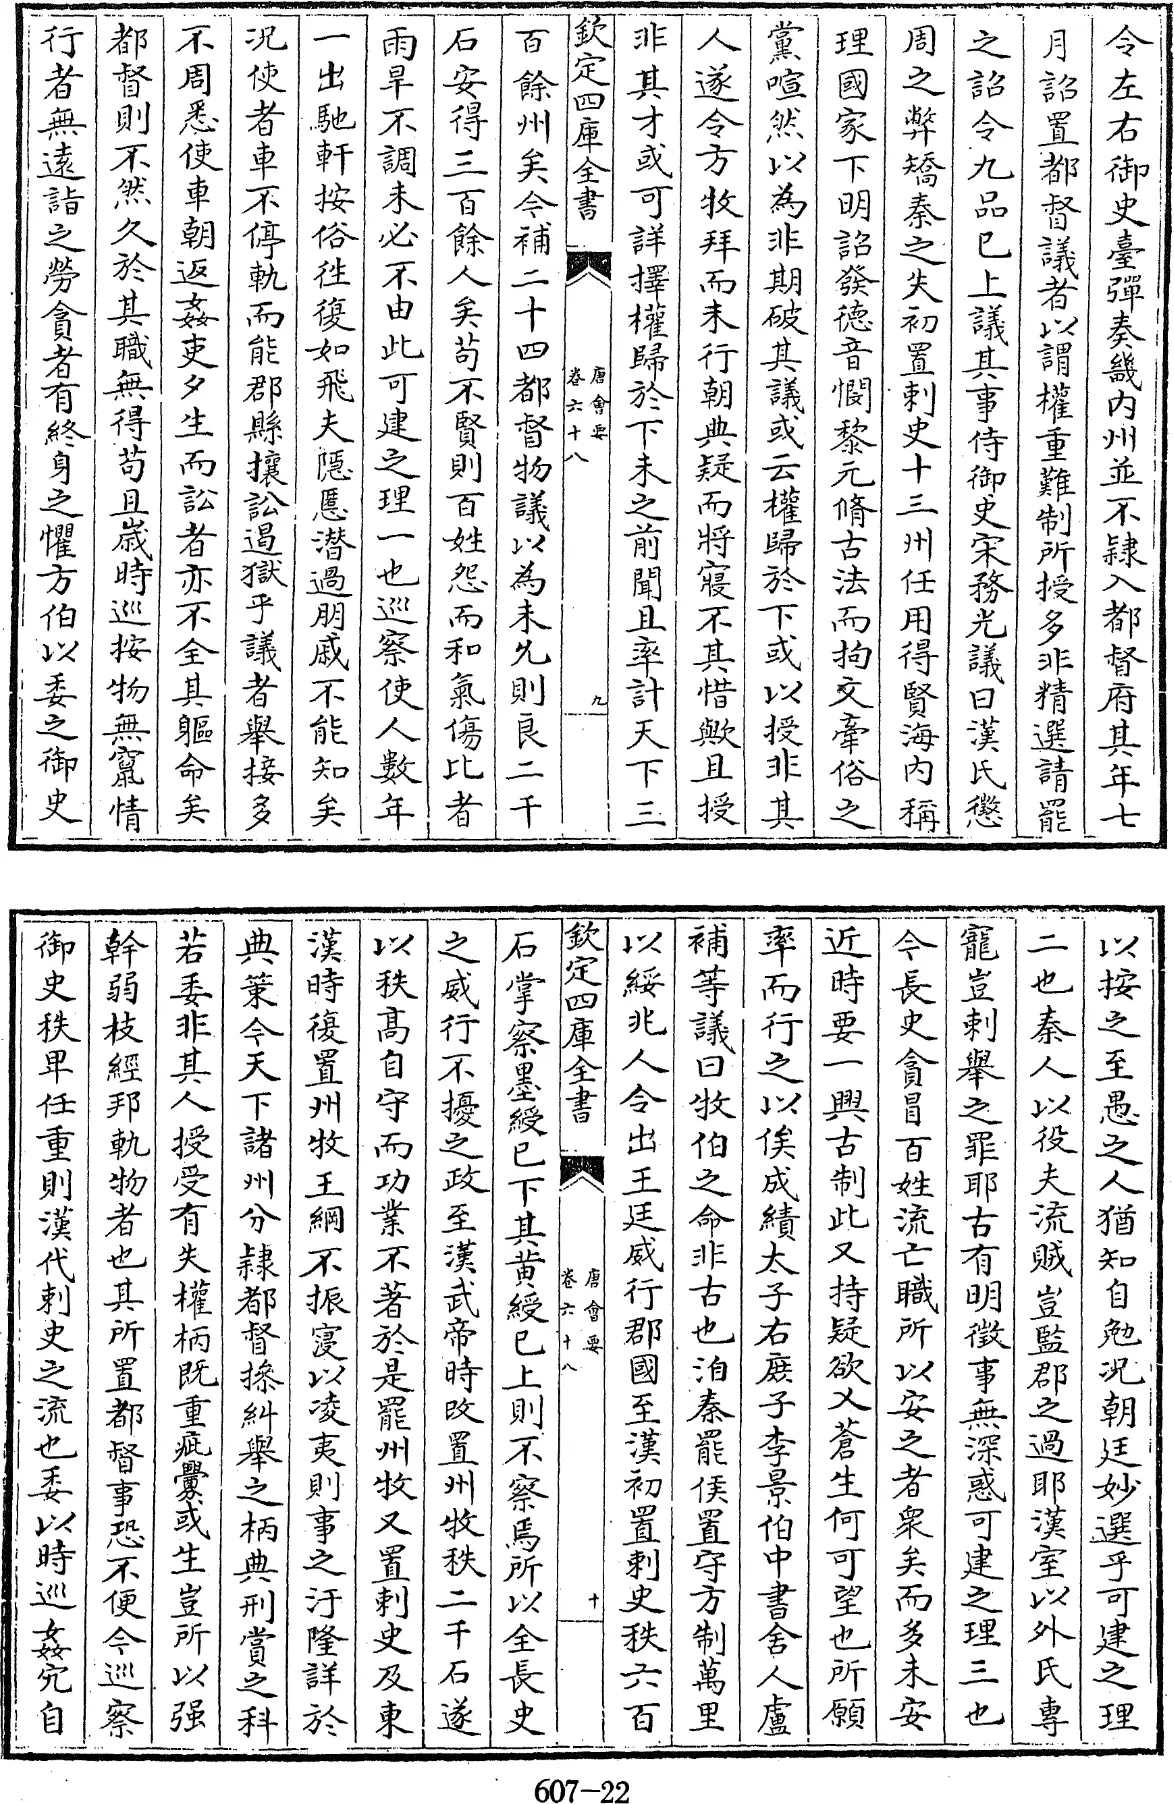 令左右御史臺彈奏畿内州並不隸入都督府其年七
月詔置都督議者以謂權重難制所授多非精選請罷
之詔令九品已上議其事侍御史宋務光議曰漢氏懲
周之弊矯秦之失初置刺史十三州任用得賢海内稱
理國家下明詔發德音憫黎元脩古法而拘文牽俗之
黨喧然以為非期破其議或云權歸於下或以授非其
人遂令方牧拜而未行朝典疑而將寢不其惜歟且授
非其才或可詳擇權歸於下未之前聞且率計天下三
欽定四庫全書
唐會要
卷六十八
九
百餘州矣今補二十四都督物議以為未允則良二千
石安得三百餘人矣苟不賢則百姓怨而和氣傷比者
雨旱不調未必不由此可建之理一也巡察使人數年
一出馳軒按俗徃復如飛夫隱慝潜過朋戚不能知矣
况使者車不停軌而能郡縣攘訟遏獄乎議者舉接多
不周悉使車朝返姦吏夕生而訟者亦不全其軀命矣
都督則不然久於其職無得苟且嵗時巡按物無竄情
行者無逺詣之勞貪者有終身之懼方伯以委之御史
以按之至愚之人猶知自勉况朝廷妙選乎可建之理
二也秦人以役夫流賊豈監郡之過耶漢室以外氏專
寵豈刺舉之罪耶古有明徵事無深惑可建之理三也
今長史貪冒百姓流亡職所以安之者衆矣而多未安
近時要一興古制此又持疑欲乂蒼生何可望也所願
率而行之以俟成績太子右庶子李景伯中書舍人盧
補等議曰牧伯之命非古也洎秦罷侯置守方制萬里
以綏兆人令出王廷威行郡國至漢初置刺史秩六百
欽定四庫全書
唐會要
卷六十八
十
石掌察墨綬已下其黄綬已上則不察焉所以全長史
之威行不擾之政至漢武帝時改置州牧秩二千石遂
以秩高自守而功業不著於是罷州牧又置刺史及東
漢時復置州牧王綱不振寖以凌夷則事之汙隆詳於
典策今天下諸州分隸都督摻糾舉之柄典刑賞之科
若委非其人授受有失權柄既重疵釁或生豈所以强
幹弱枝經邦軌物者也其所置都督事恐不便今巡察
御史秩卑任重則漢代刺史之流也委以時巡姦宄自
607-22